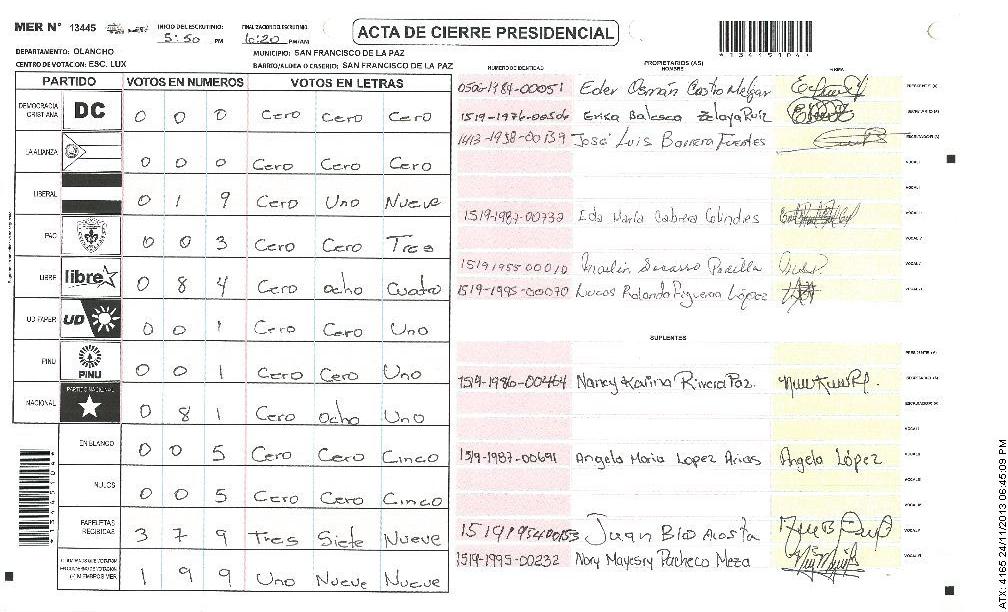 MER N° 13445 INICIO DEL ESCRUTINIO: 5:50 PM FINALIZACION DEL ESCRUTINIO: 6:20 PM/AM ACTA DE CIERRE PRESIDENCIAL
*13445104*
DEPARTAMENTO: OLANCHO MUNICIPIO: SAN FRANCISCO DE LA PAZ
CENTRO DE VOTACION: ESC. LUX BARRIO/ALDEA O CASERIO: SAN FRANCISCO DE LA PAZ
PARTIDO VOTOS EN NUMEROS VOTOS EN LETRAS
DEMOCRACIA CRISTIANA DC 0 0 0 Cero Cero Cero
LA ALIANZA 0 0 0 Cero Cero Cero
LIBERAL 0 1 9 Cero Uno Nueve
PAC 0 0 3 Cero Cero Tres
LIBRE libre 0 8 4 Cero ocho Cuatro
UD FAPER UD 0 0 1 Cero Cero Uno
PINU PINU 0 0 1 Cero Cero Uno
NACIONAL PARTIDO NACIONAL 0 8 1 Cero ocho Uno
EN BLANCO 0 0 5 Cero Cero Cinco
NULOS 0 0 5 Cero Cero Cinco
PAPELETAS RECIBIDAS 3 7 9 Tres Siete Nueve
1 9 9 Uno Nueve Nueve
*13445104*
NUMERO DE IDENTIDAD PROPRIETARIOS (AS) NOMBRE FIRMA
0506-1984-00051 Eder Osmán Castro Melgar PRESIDENTE (A)
1519-1976-00506 Erika Balesca Zelaya Ruíz SECRETARIO (A)
1413-1938-00139 José Luis Barrera Fuentes ESCRUTADOR (A)
VOCAL I
VOCAL II
1519-1987-00732 Eda María Cabrera Colindres VOCAL
VOCAL
1519 1955 00010 VOCAL
1519-1995-00070 Lucas Rolando Figueroa López VOCAL
SUPLENTES
PRESIDENTE (A)
1519-1986-00464 Nancy Karina Rivera Paz. SECRETARIO (A)
ESCRUTADOR (A)
VOCAL I
1519-1987-00691 Angela Maria Lopez Arias Angela López VOCAL
VOCAL
VOCAL
1519195400153 Juan Blo Acosta VOCAL
1519-1995-00232 Nory Mayesry Pacheco Meza VOCAL
ATX: 4165 24/11/2013 06:45:09 PM